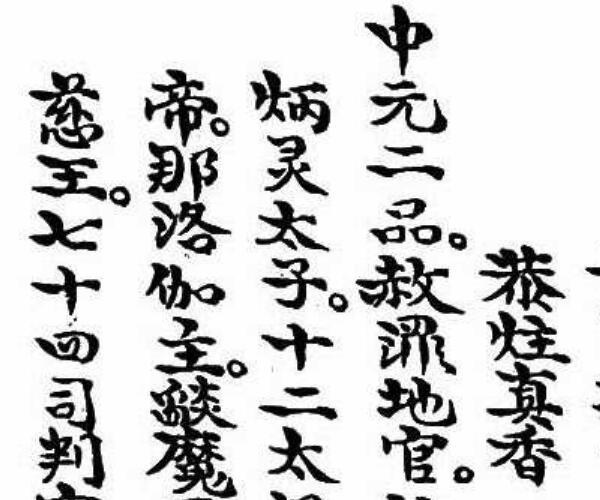 恭炷真香
中元二品。赦罪地官。
炳灵太子。十二太
帝。那洛伽主。燄魔
慈王。七十四司判